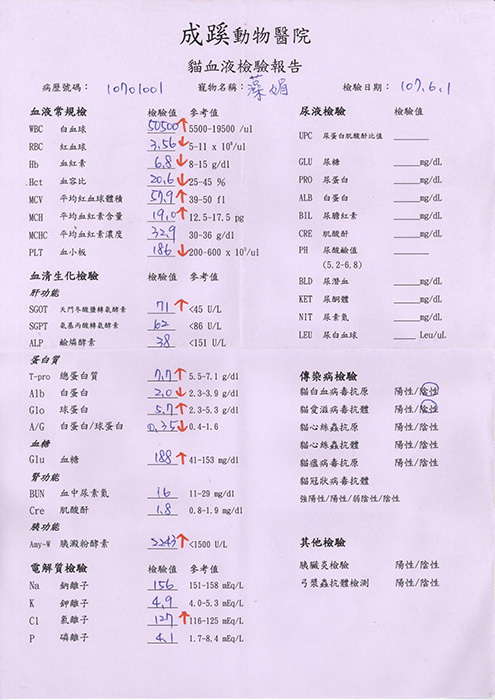 成蹊動物醫院
貓血液檢驗報告
病歷號碼： 10701001 寵物名稱：藻娟 檢驗日期： 107.6.1
血液常規檢 檢驗值 參考值
WBC 白血球 50500↑ 5500-19500 /ul
RBC 紅血球 3.56↓ 5-11 x 10⁶/ul
Hb 血紅素 6.8↓ 8-15 g/dl
Hct 血容比 20.6↓ 25-45 %
MCV 平均紅血球體積 57.9↑ 39-50 fl
MCH 平均血紅素含量 19.0↑ 12.5-17.5 pg
MCHC 平均血紅素濃度 32.9 30-36 g/dl
PLT 血小板 186↓ 200-600 x 10³/ul
血清生化檢驗 檢驗值 參考值
肝功能
SGOT 天門冬酸鹽轉氨酵素 71↑ <45 U/L
SGPT 氨基丙酸轉氨酵素 62 <86 U/L
ALP 鹼磷酵素 38 <151 U/L
蛋白質
T-pro 總蛋白質 7.7↑ 5.5-7.1 g/dl
Alb 白蛋白 2.0↓ 2.3-3.9 g/dl
Glo 球蛋白 5.7↑ 2.3-5.3 g/dl
A/G 白蛋白/球蛋白 0.35↓ 0.4-1.6
血糖
Glu 血糖 188↑ 41-153 mg/dl
腎功能
BUN 血中尿素氮 16 11-29 mg/dl
Cre 肌酸酐 1.8 0.8-1.9 mg/dl
胰功能
Amy-W 胰澱粉酵素 2243↑ <1500 U/L
電解質檢驗 檢驗值 參考值
Na 鈉離子 156 151-158 mEq/L
K 鉀離子 4.9 4.0-5.3 mEq/L
Cl 氯離子 127↑ 116-125 mEq/L
P 磷離子 4.1 1.7-8.4 mEq/L
尿液檢驗 檢驗值
UPC 尿蛋白肌酸酐比值
GLU 尿糖 mg/dL
PRO 尿蛋白 mg/dL
ALB 白蛋白 mg/dL
BIL 尿膽紅素 mg/dL
CRE 肌酸酐 mg/dL
PH 尿酸鹼值 mg/dL
(5.2-6.8)
BLD 尿潛血 mg/dL
KET 尿酮體 mg/dL
NIT 尿素氮 mg/dL
LEU 尿白血球 Leu/uL
傳染病檢驗
貓白血病毒抗原 陽性/陰性
貓愛滋病毒抗體 陽性/陰性
貓心絲蟲抗原 陽性/陰性
貓心絲蟲抗體 陽性/陰性
貓瘟病毒抗原 陽性/陰性
貓冠狀病毒抗體
強陽性/陽性/弱陰性/陰性
其他檢驗
胰臟炎檢驗 陽性/陰性
弓漿蟲抗體檢測 陽性/陰性